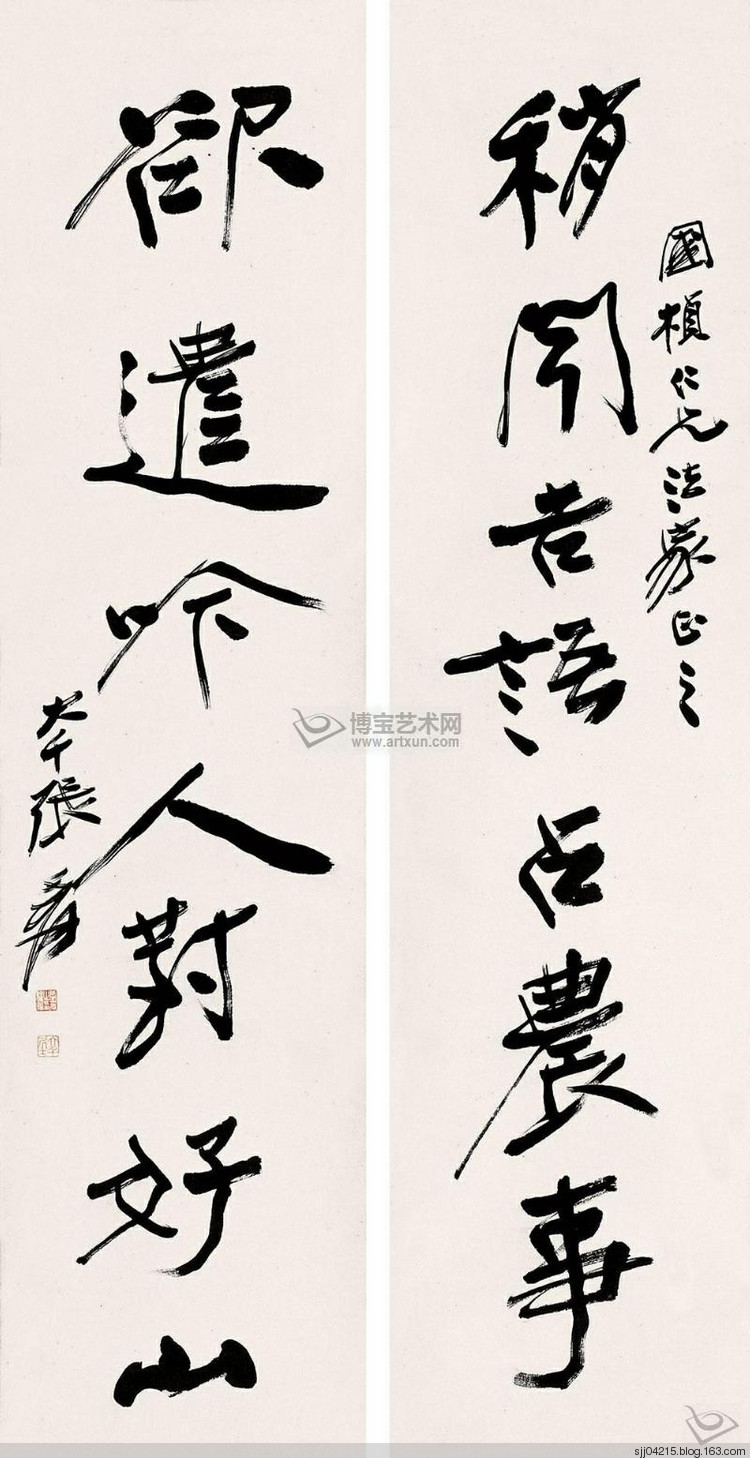 國楨仁兄法家正之
稍聞吉語占農事
欲遣吟人對好山
大千張爰
博宝艺术网
www.artxun.com
sjj04215.blog.163.com